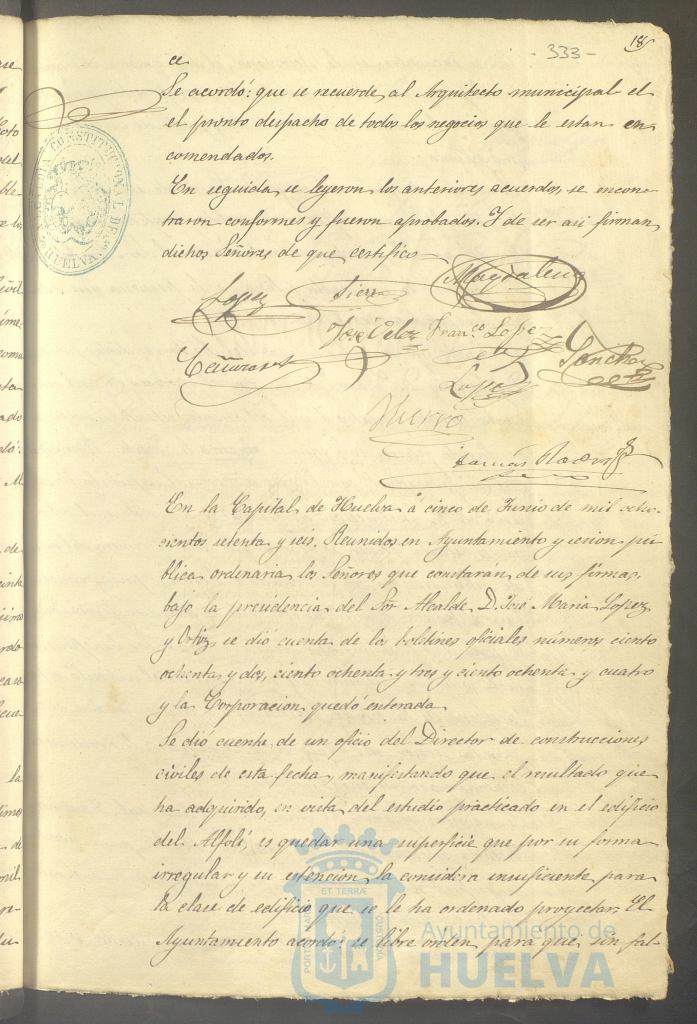 18
- 333 -
ce
Se acordó: que se recuerde al Arquitecto municipal el
el pronto despacho de todos los negocios que le estan en-
comendados.
En seguida se leyeron los anteriores acuerdos, se encon-
traron conformes y fueron aprobados. Y de ser asi firman
dichos Señores de que certifico
Lopez Sierra Magdalena
José Velez Fran.co Lopez Sanchez
Lopez
Hierro
Tomás Rodrig
En la Capital de Huelva á cinco de Junio de mil ocho-
cientos setenta y seis. Reunidos en Ayuntamiento y sesion pú-
blica ordinaria los Señores que constarán de sus firmas,
bajo la presidencia del Sor Alcalde D. José Maria Lopez
y Ortiz, se dió cuenta de los boletines oficiales números ciento
ochenta y dos, ciento ochenta y tres y ciento ochenta y cuatro
y la Corporacion quedó enterada
Se dió cuenta de un oficio del Director de construcciones
civiles de esta fecha, manifestando que el resultado que
ha adquirido, en vista del estudio practicado en el edificio
del Alfolí, es quedar una superficie que por su forma
irregular y su estencion la considera insuficiente para
la clase de edificio que se le ha ordenado proyectar. El
Ayuntamiento acordó: se libre orden para que sin fal-
ALCALDIA CONSTITUCIONAL DE HUELVA
Ayuntamiento de
HUELVA
PORTUS MARIS ET TERRÆ CUSTODIA